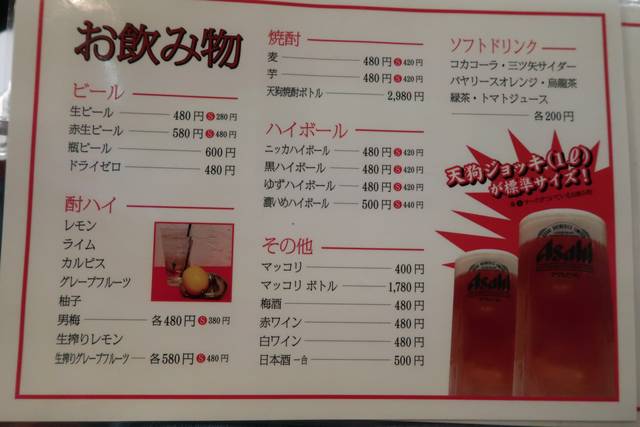 お飲み物
ビール
生ビール 480円 S 280円
赤生ビール 580円 S 480円
瓶ビール 600円
ドライゼロ 480円
酎ハイ
レモン
ライム
カルピス
グレープフルーツ
柚子
男梅 各480円 S 380円
生搾りレモン
生搾りグレープフルーツ 各580円 S 480円
焼酎
麦 480円 S 420円
芋 480円 S 420円
天狗焼酎ボトル 2,980円
ハイボール
ニッカハイボール 480円 S 420円
黒ハイボール 480円 S 420円
ゆずハイボール 480円 S 420円
濃いめハイボール 500円 S 440円
その他
マッコリ 400円
マッコリ ボトル 1,780円
梅酒 480円
赤ワイン 480円
白ワイン 480円
日本酒 一合 500円
ソフトドリンク
コカコーラ・三ツ矢サイダー
バヤリースオレンジ・烏龍茶
緑茶・トマトジュース
各200円
天狗ジョッキ(1ℓ)
が標準サイズ!
Asahi
Asahi